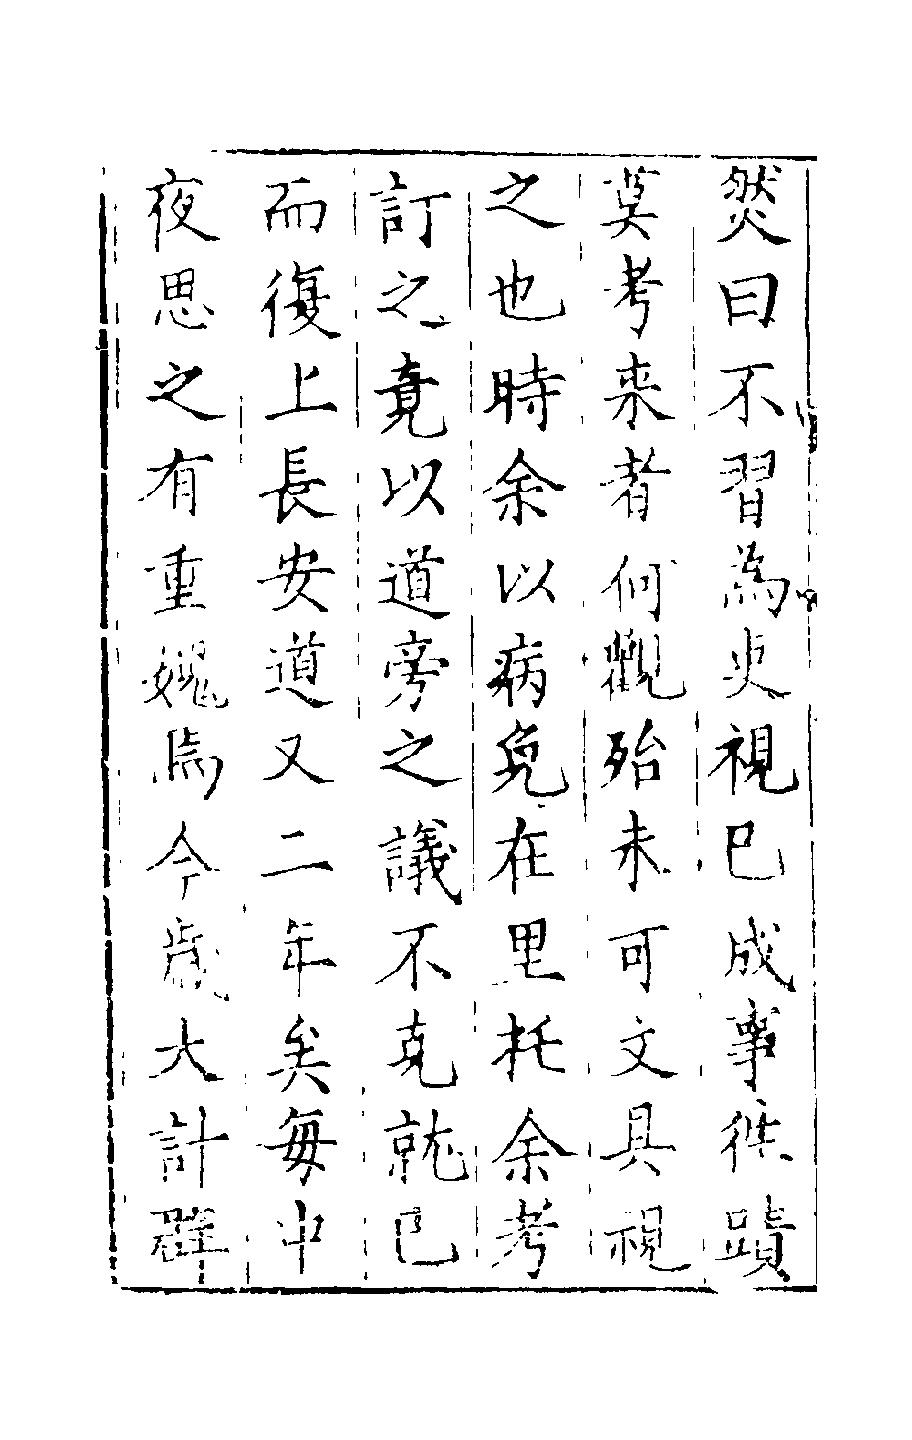 然曰不習為吏視已成事徃蹟
莫考来者何觀殆未可文具視
之也時余以病免在里托余考
訂之竟以道旁之議不克就已
而復上長安道又二年矣每中
夜思之有重媿焉今歳大計群